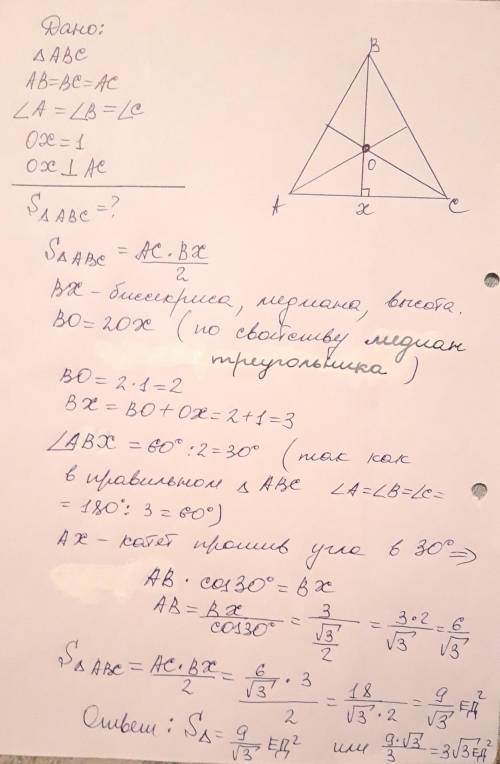 Дано:
△ABC
AB=BC=AC
∠A=∠B=∠C
OX=1
OX⊥AC
S△ABC=?
B
O
A
X
C
S△ABC = AC·BX/2
BX – биссекриса, медиана, высота.
BO=2OX (по свойству медиан
треугольника)
BO=2·1=2
BX=BO+OX=2+1=3
∠ABX=60°:2=30° (так как
в правильном △ABC ∠A=∠B=∠C=
=180°:3=60°)
AX – катет против угла в 30°⇒
AB·cos30°=BX
AB=BX/cos30°=3/(√3/2)=3·2/√3=6/√3
S△ABC=AC·BX/2=(6/√3·3)/2=18/(√3·2)=9/√3 ЕД²
Ответ: S△=9/√3 ЕД² или 9·√3/3=3√3 ЕД²